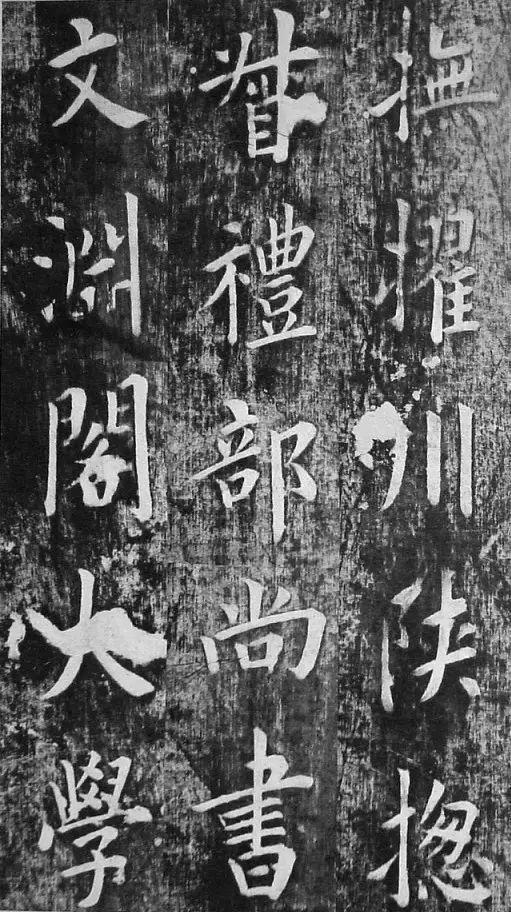 撫擢川陝揔
督禮部尚書
文淵閣大學